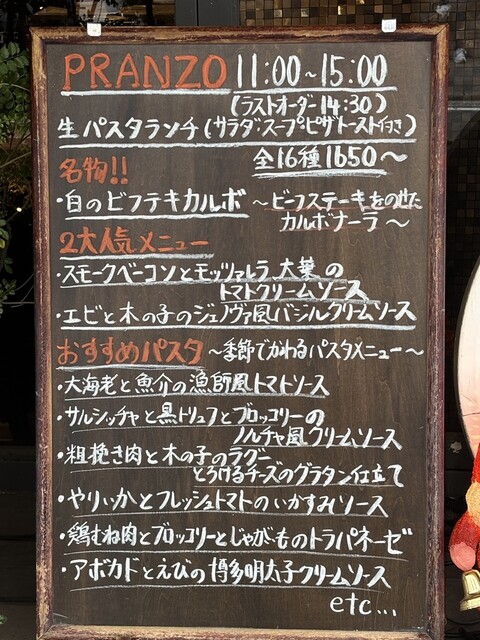 PRANZO 11:00~15:00
(ラストオーダー14:30)
生パスタランチ(サラダ・スープ・ピザトースト付き)
全16種1650~
名物!!
・白のビフテキカルボ ~ビーフステーキをのせた
カルボナーラ~
2大人気メニュー
・スモークベーコンとモッツァレラ、大葉の
トマトクリームソース
・エビと木の子のジェノヴァ風バジルクリームソース
おすすめパスタ ~季節でかわるパスタメニュー~
・大海老と魚介の漁師風トマトソース
・サルシッチャと黒トリュフとブロッコリーの
ノルチャ風クリームソース
・粗挽き肉と木の子のラグー
とろけるチーズのグラタン仕立て
・やりいかとフレッシュトマトのいかすみソース
・鶏むね肉とブロッコリーとじゃがいものトラパネーゼ
・アボカドとえびの博多明太子クリームソース
etc...